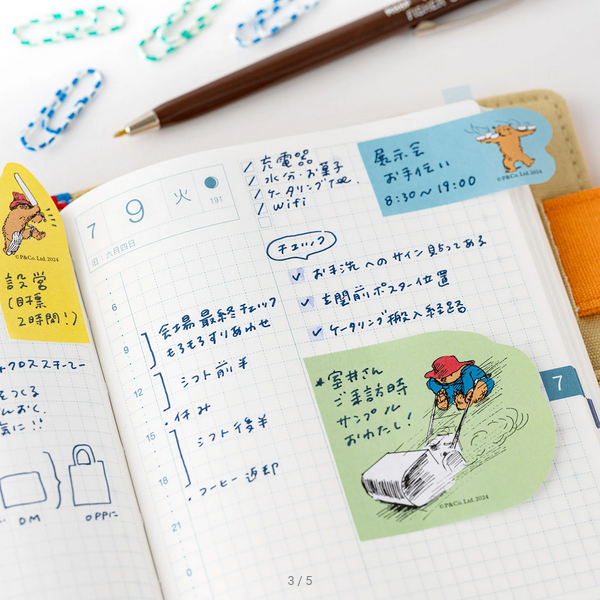 FISHER
7 9 火
191
旧:六月四日
/ 充電器
/ 水分・お菓子
/ ケータリングtel.
/ wifi
展示会
お手伝い
8:30〜19:00
©P&Co. Ltd. 2024
©P&Co. Ltd. 2024
設営
(目標
2時間!)
チェック
✓ お手洗へのサイン貼ってある
✓ 玄関前ポスター位置
✓ ケータリング搬入経路
6
9
12
15
18
21
0
会場最終チェック
もろもろすりあわせ
シフト前半
・休み
シフト後半
・コーヒー返却
7
*室井さん
ご来訪時
サンプル
おわたし!
©P&Co. Ltd. 2024
クロススチーマー
をつくる
んおく.
気に!!
DM
OPPに
3 / 5